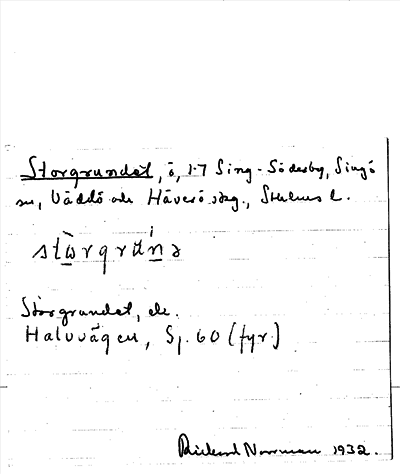 Storgrundet, ö, 1.7 Sing-Söderby, Singö
sn, Väddö och Häverö skg., Sthlms l.
Storgrundet, ele.
Halvvägen, Sp. 60 (fyr.)
Rickard Norrman 1932.